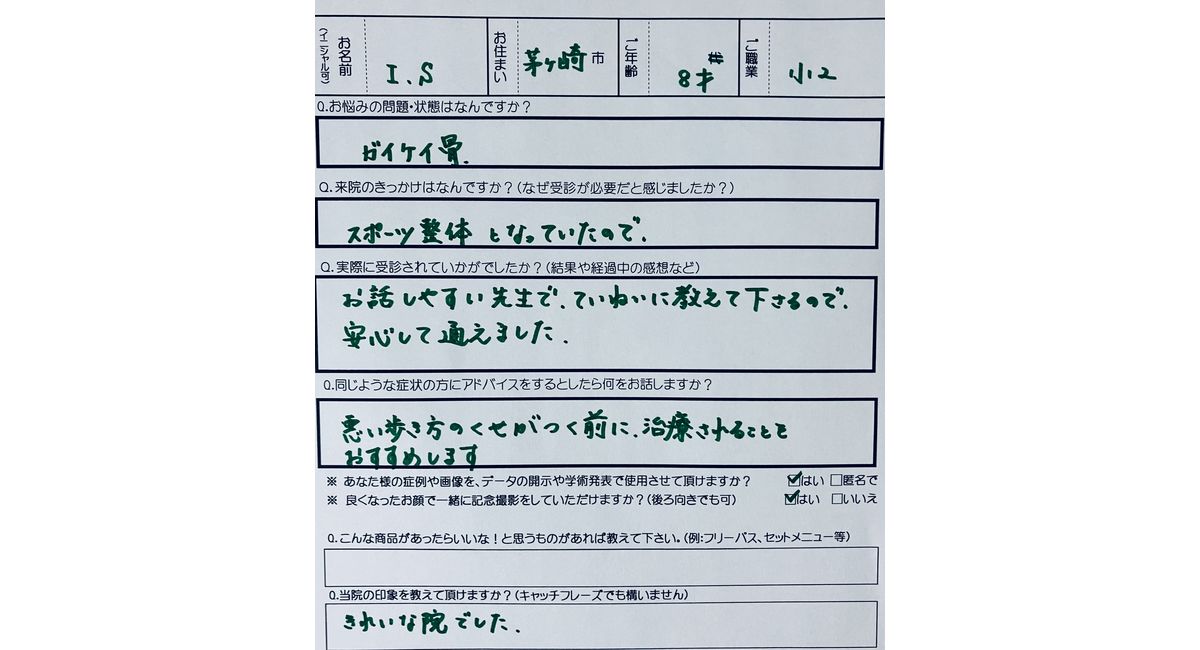 お名前（イニシャル可） I.S お住まい 茅ヶ崎市 ご年齢 8才 ご職業 小2
Q.お悩みの問題・状態はなんですか？
ガイケイ骨.
Q.来院のきっかけはなんですか？(なぜ受診が必要だと感じましたか？)
スポーツ整体となっていたので.
Q.実際に受診されていかがでしたか？(結果や経過中の感想など)
お話しやすい先生で、ていねいに教えて下さるので、
安心して通えました.
Q.同じような症状の方にアドバイスをするとしたら何をお話しますか？
悪い歩き方のくせがつく前に、治療されることを
おすすめします
※ あなた様の症例や画像を、データの開示や学術発表で使用させて頂けますか？ ☑はい □匿名で
※ 良くなったお顔で一緒に記念撮影をしていただけますか？(後ろ向きでも可) ☑はい □いいえ
Q.こんな商品があったらいいな！と思うものがあれば教えて下さい。(例:フリーパス、セットメニュー等)
Q.当院の印象を教えて頂けますか？(キャッチフレーズでも構いません)
きれいな院でした.